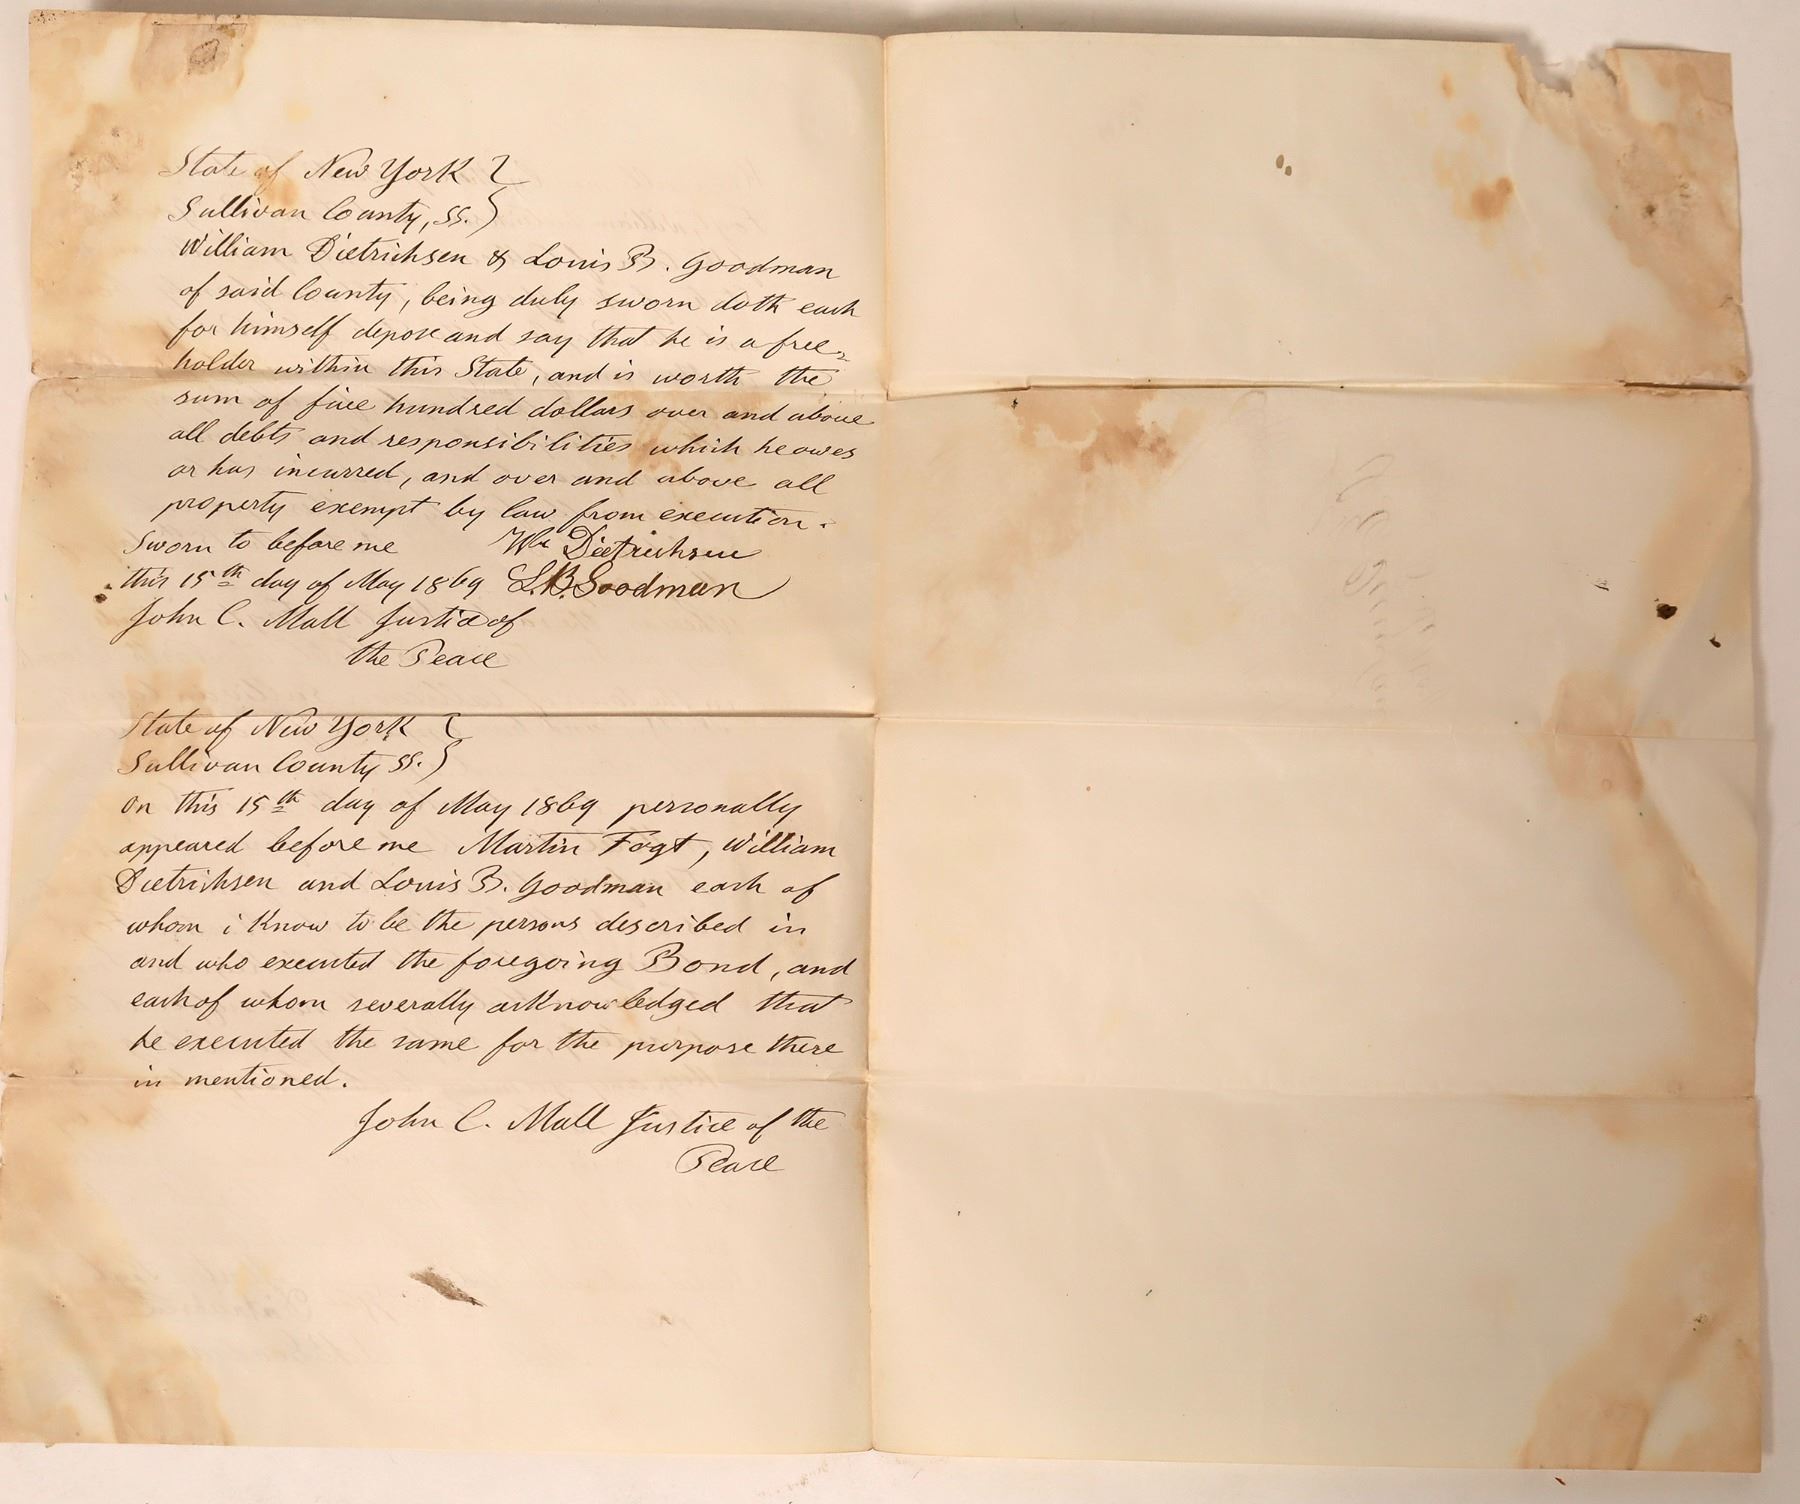 State of New York }
Sullivan County, SS. }
William Dietrichsen & Louis B. Goodman
of said County, being duly sworn doth each
for himself depose and say that he is a free=
holder within this State, and is worth the
sum of five hundred dollars over and above
all debts and responsibilities which he owes
or has incurred, and over and above all
property exempt by law from execution.
Sworn to before me Wm Dietrichsen
this 15th day of May 1869 L.B. Goodman
John C. Mall Justice of
the Peace
State of New York }
Sullivan County SS. }
On this 15th day of May 1869 personally
appeared before me Martin Fogt, William
Dietrichsen and Louis B. Goodman each of
whom i know to be the persons described in
and who executed the foregoing Bond, and
each of whom severally acknowledged that
he executed the same for the purpose there
in mentioned.
John C. Mall Justice of the
Peace